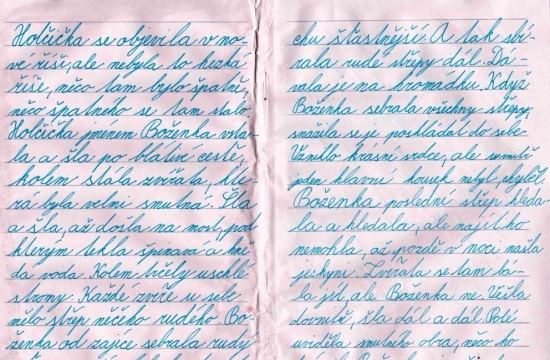 Holčička se objevila v no-
vé říši, ale nebyla to hezká
říše, něco tam bylo špatně,
něco špatného se tam stalo.
Holčička jmenem Boženka vsta-
la a šla po blátivé cestě,
kolem stála zvířata, kte-
rá byla velmi smutná. Šla
a šla, až došla na most, pod
kterým tekla špinavá a hně-
dá voda. Kolem trčely uschlé
stromy. Každé zvíře u sebe
mělo střep něčeho rudého. Bo-
ženka od zajíce sebrala rudý
chu šťastnější. A tak sbí-
rala rudé střepy dál. Dá-
vala je na hromádku. Když
Boženka sebrala všechny střepy,
snažila se je poskládat do sebe.
Vzniklo krásné srdce, ale uvnitř
jeden hlavní kousek nebyl, chyběl.
Boženka poslední střep hleda-
la a hledala, ale najít ho
nemohla, až pozdě v noci našla
jeskyni. Zvířata se tam bá-
la jít, ale Boženka ne. Vešla
dovnitř, šla dál a dál. Poté
uviděla smutného obra, neco ho